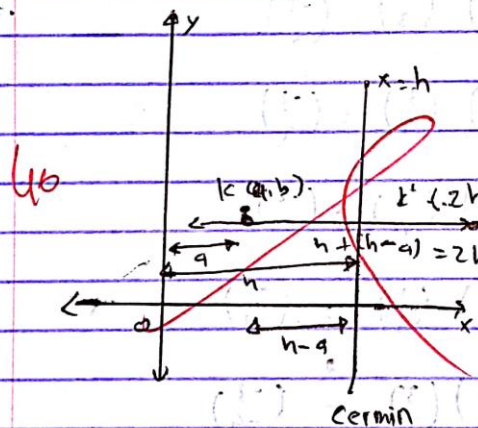 y
x = h
40
K (a,b).
K' (.2h
a
h + (h-a) = 2h
h
x
h-a
Cermin